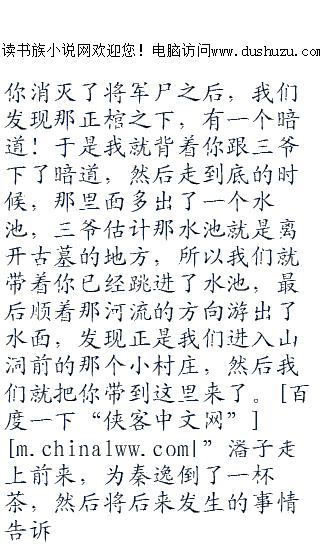 读书族小说网欢迎您！电脑访问www.dushuzu.com
你消灭了将军尸之后，我们
发现那正棺之下，有一个暗
道！于是我就背着你跟三爷
下了暗道，然后走到底的时
候，那里面多出了一个水
池，三爷估计那水池就是离
开古墓的地方，所以我们就
带着你已经跳进了水池，最
后顺着那河流的方向游出了
水面，发现正是我们进入山
洞前的那个小村庄，然后我
们就把你带到这里来了。[百
度一下“侠客中文网”]
[m.chinalww.com|”潘子走
上前来，为秦逸倒了一杯
茶，然后将后来发生的事情
告诉